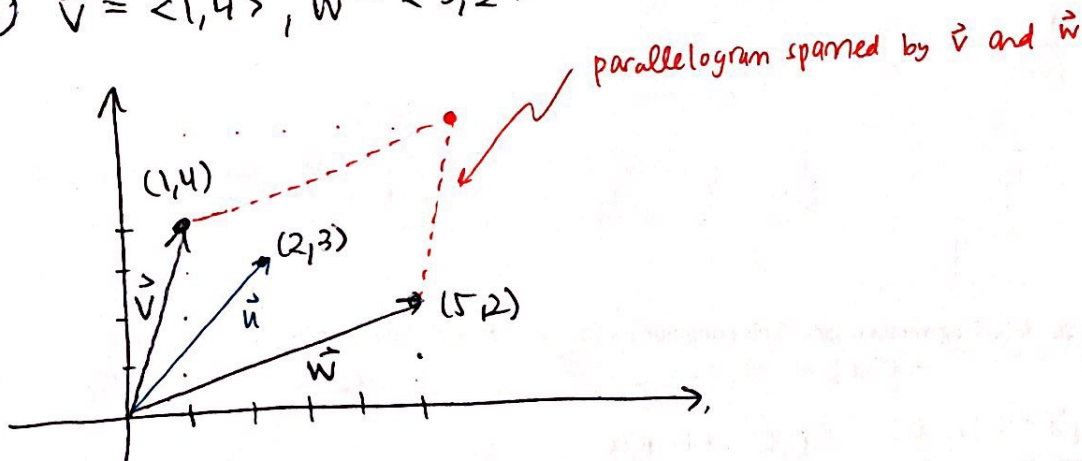 ) v⃗ = <1,4>, w⃗
parallelogram spanned by v⃗ and w⃗
(1,4)
(2,3)
v⃗
u⃗
(5,2)
w⃗